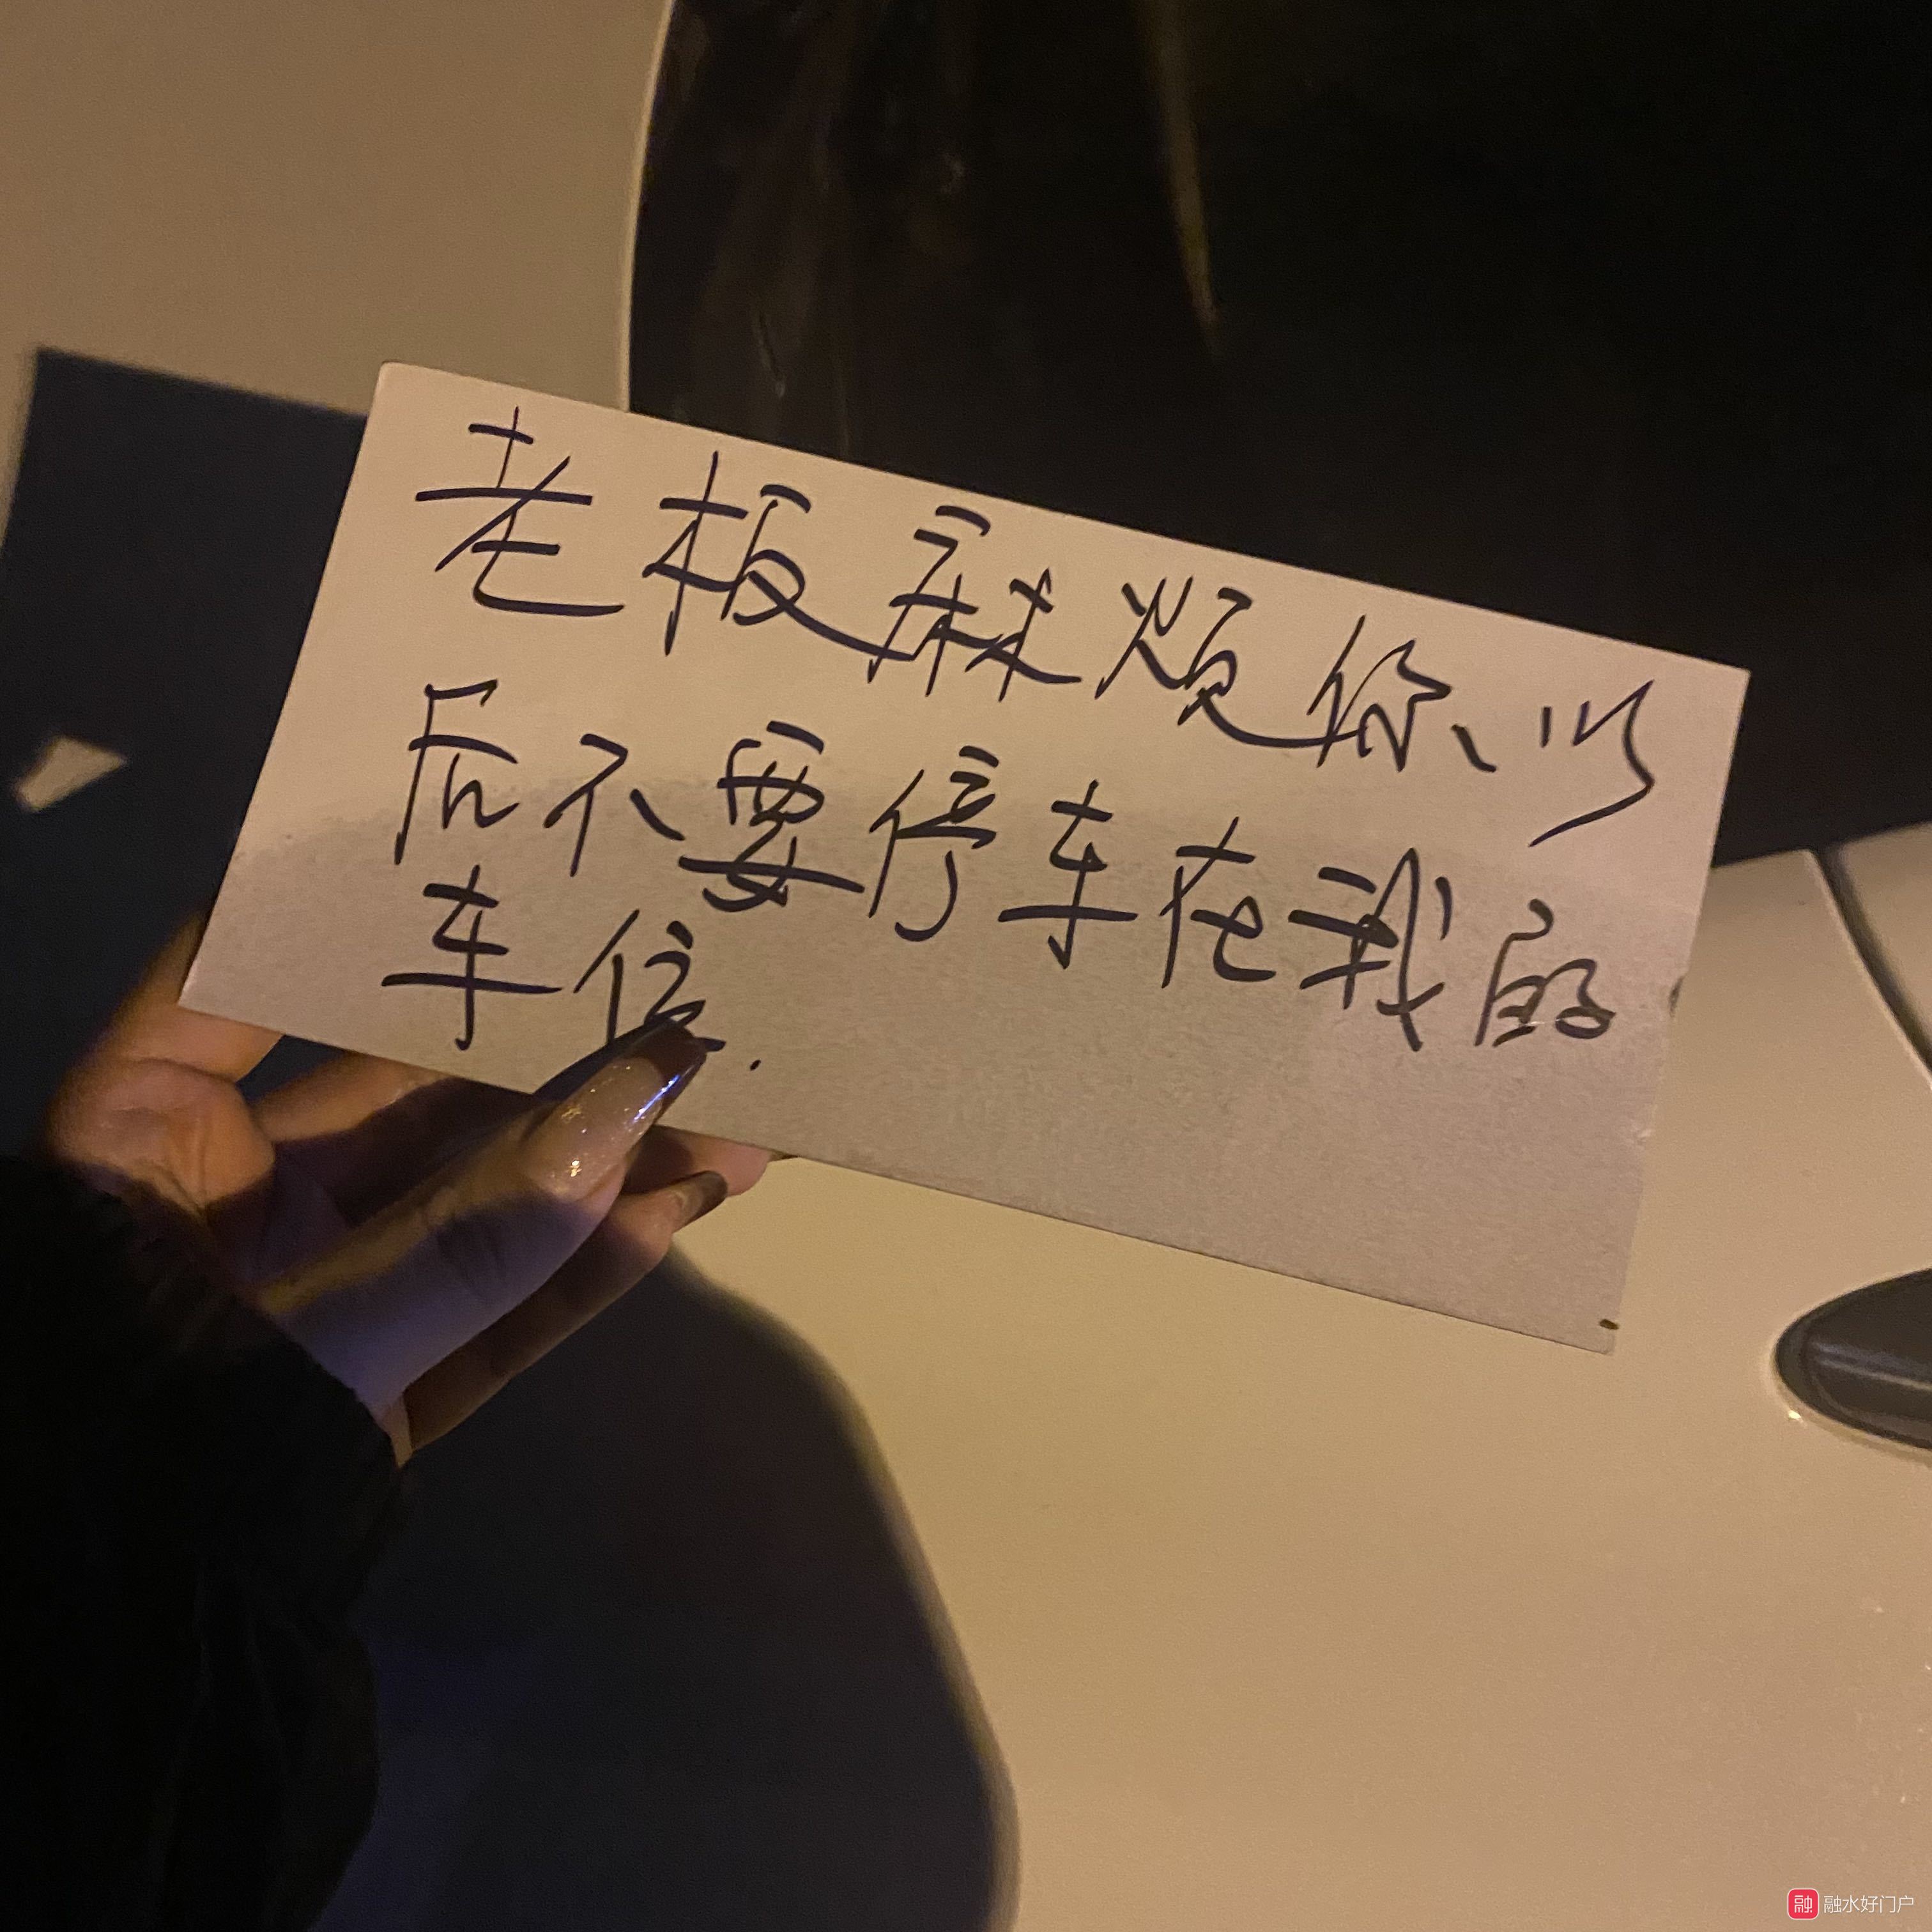 老板麻烦你、以
后不要停车在我的
车位.
融 融水好门户